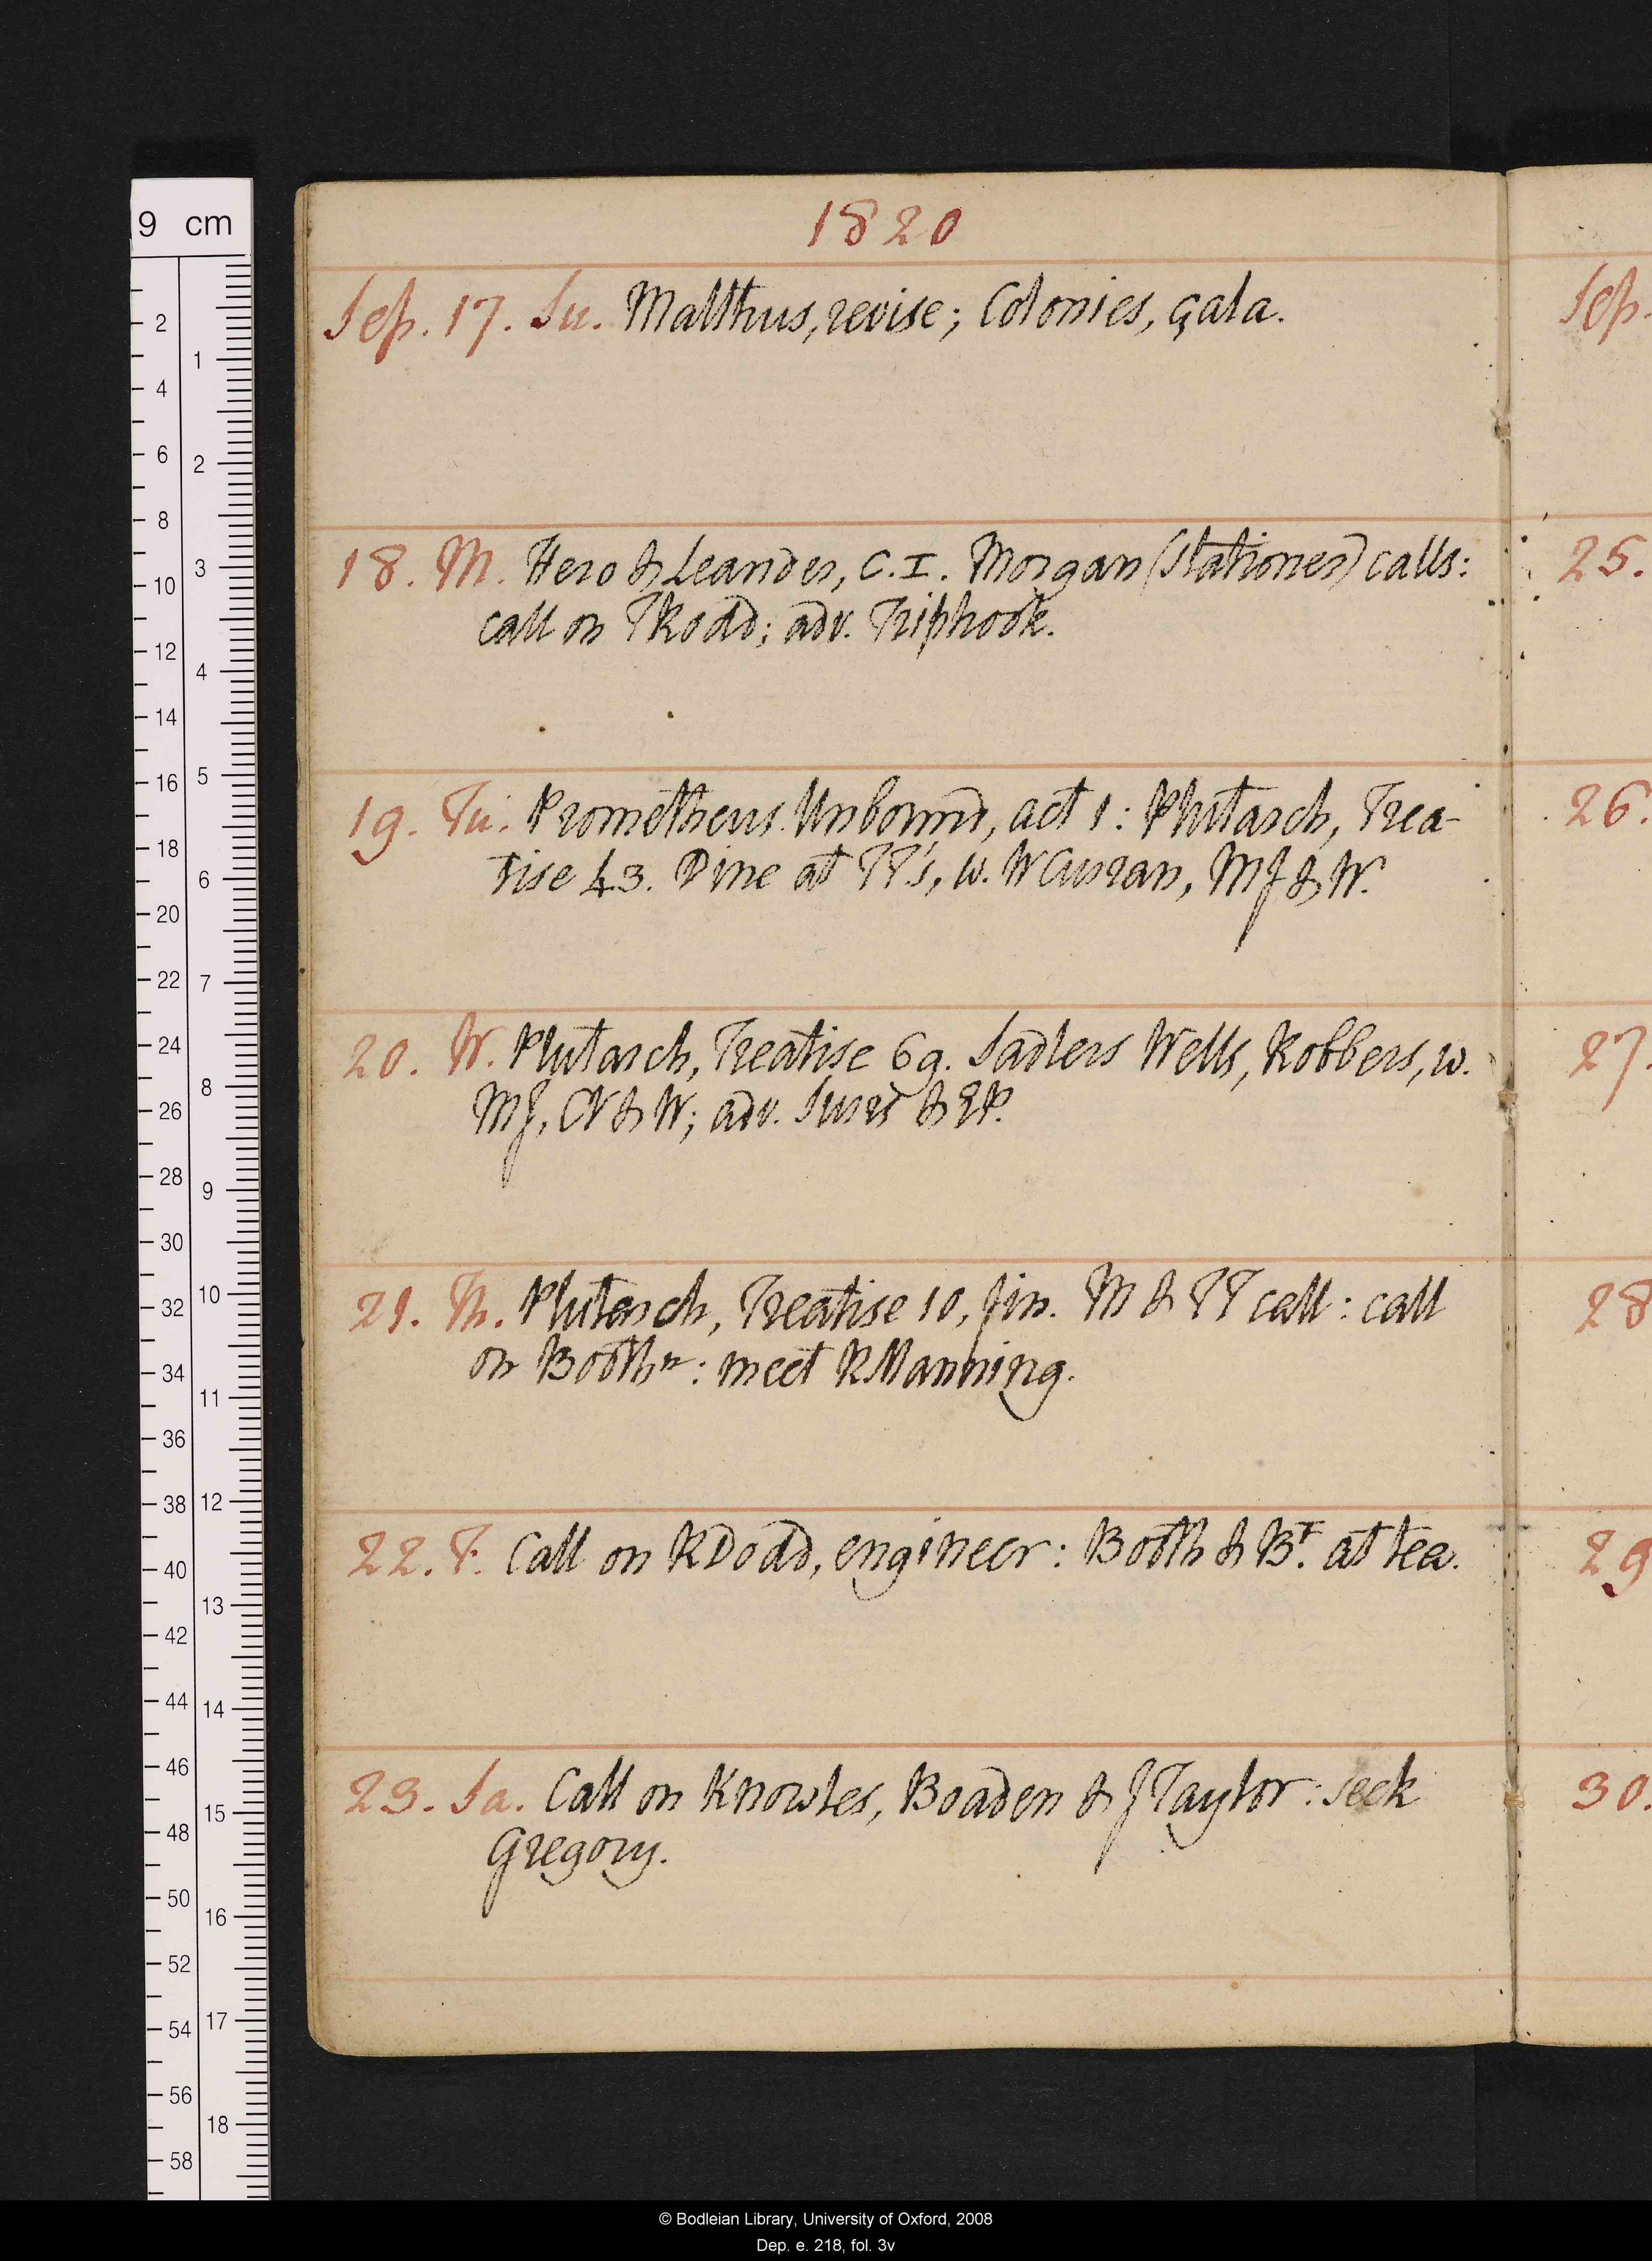 1820
Sep. 17. Su. Malthus, revise; Colonies, çala.
18. M. Hero & Leander, C. I. Morgan (Stationer) calls:
call on TRodd; adv. Triphook.
19. Tu. Prometheus Unbound, act 1: Plutarch, Trea-
tise 43. Dine at TT's, w. WCurran, MJ & W.
20. W. Plutarch, Treatise 69. Sadlers Wells, Robbers, w.
MJ, CN & W; adv. &
21. Th. Plutarch, Treatise 10, fin. M & TT call: call
on Boothn: meet RManning.
22. F. Call on RDodd, engineer: Booth & Br. at tea.
23. Sa. Call on Knowles, Boaden & JTaylor: seek
Gregory.
Sep.
25.
26.
27.
28
29
30.
9 cm
2
4
6
8
10
12
14
16
18
20
22
24
26
28
30
32
34
36
38
40
42
44
46
48
50
52
54
56
58
1
2
3
4
5
6
7
8
9
10
11
12
13
14
15
16
17
18
© Bodleian Library, University of Oxford, 2008
Dep. e. 218, fol. 3v